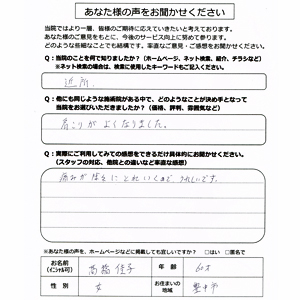 あなた様の声をお聞かせください
当院ではより一層、皆様のご期待に応えていきたいと考えております。
あなた様のご意見をもとに、今後のサービス向上に努めて参ります。
どのような些細なことでも結構です。率直なご意見・ご感想をお聞かせください。
Q:当院のことを何で知りましたか?(ホームページ、ネット検索、紹介、チラシなど)
※ネット検索の場合は、検索に使用したキーワードもご記入ください。
近所
Q:他にも同じような施術院がある中で、どのようなことが決め手となって
当院をお選びいただきましたか?(価格、評判、雰囲気など)
肩こりがよくなりました。
Q:実際にご利用してみての感想をできるだけ具体的にお聞かせください。
(スタッフの対応、他院との違いなど率直な感想)
痛みがほんとにとれていくので、うれしいです。
※あなた様の声を、ホームページなどに掲載しても宜しいですか? □はい □匿名で
お名前
(イニシャル可)
高 佳子
年 齢
60才
性 別
女
お住まいの
地域
豊中市